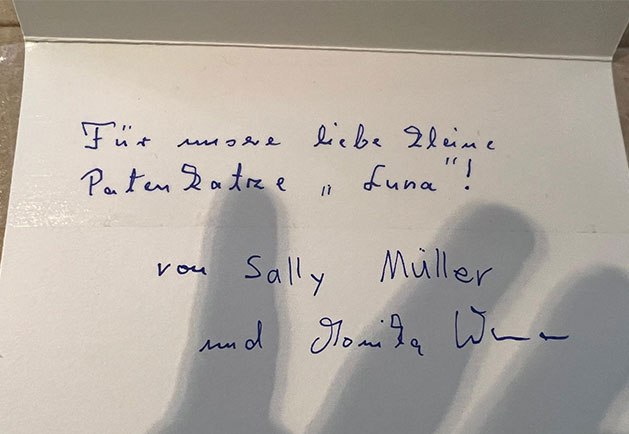 Für unsere liebe kleine
Patenkatze „Luna"!
von Sally Müller
und Monika